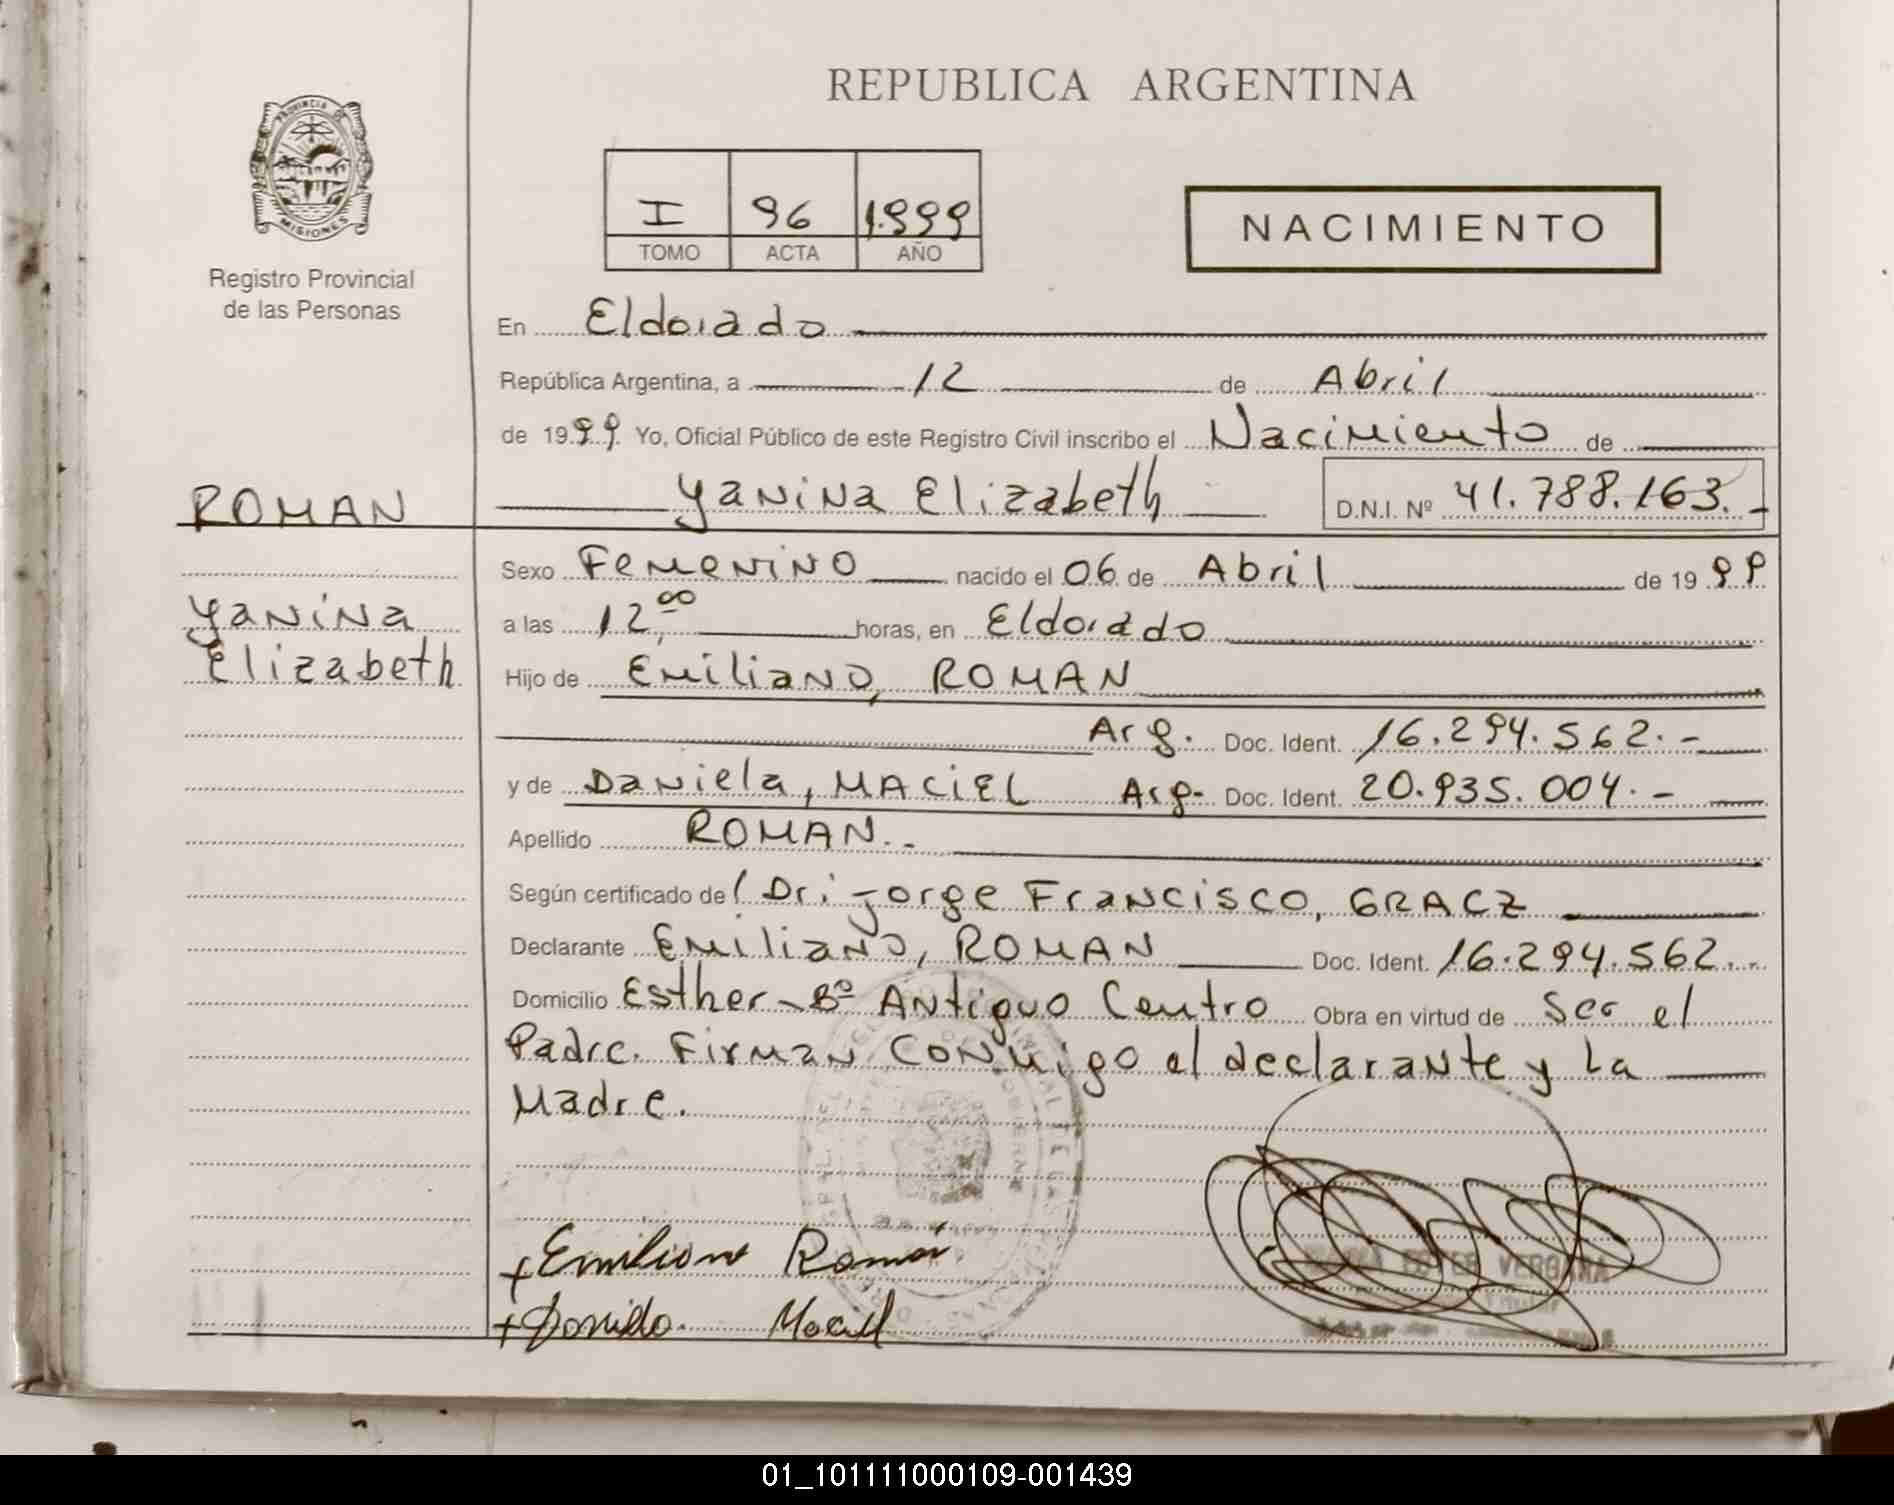 REPUBLICA ARGENTINA
PROVINCIA DE
MISIONES
Registro Provincial
de las Personas
I 96 1.999
TOMO ACTA AÑO
NACIMIENTO
En Eldorado
República Argentina, a 12 de Abril
de 1999 Yo, Oficial Público de este Registro Civil inscribo el Nacimiento de
ROMAN
Yanina Elizabeth D.N.I. Nº 41.788.163.-
Sexo Femenino nacido el 06 de Abril de 1999
Yanina
Elizabeth
a las 12,00 horas, en Eldorado
Hijo de Emiliano, ROMAN
Arg. Doc. Ident. 16.294.562.-
y de Daniela, MACIEL Arg. Doc. Ident. 20.935.004.-
Apellido ROMAN.-
Según certificado de Dr: Jorge Francisco, GRACZ
Declarante Emiliano, ROMAN Doc. Ident. 16.294.562.-
Domicilio Esther-Bº Antiguo Centro Obra en virtud de Ser el
Padre. Firman conmigo el declarante y La
Madre.
+Emiliano Román
+Daniela Maciel
VERGARA
01_101111000109-001439